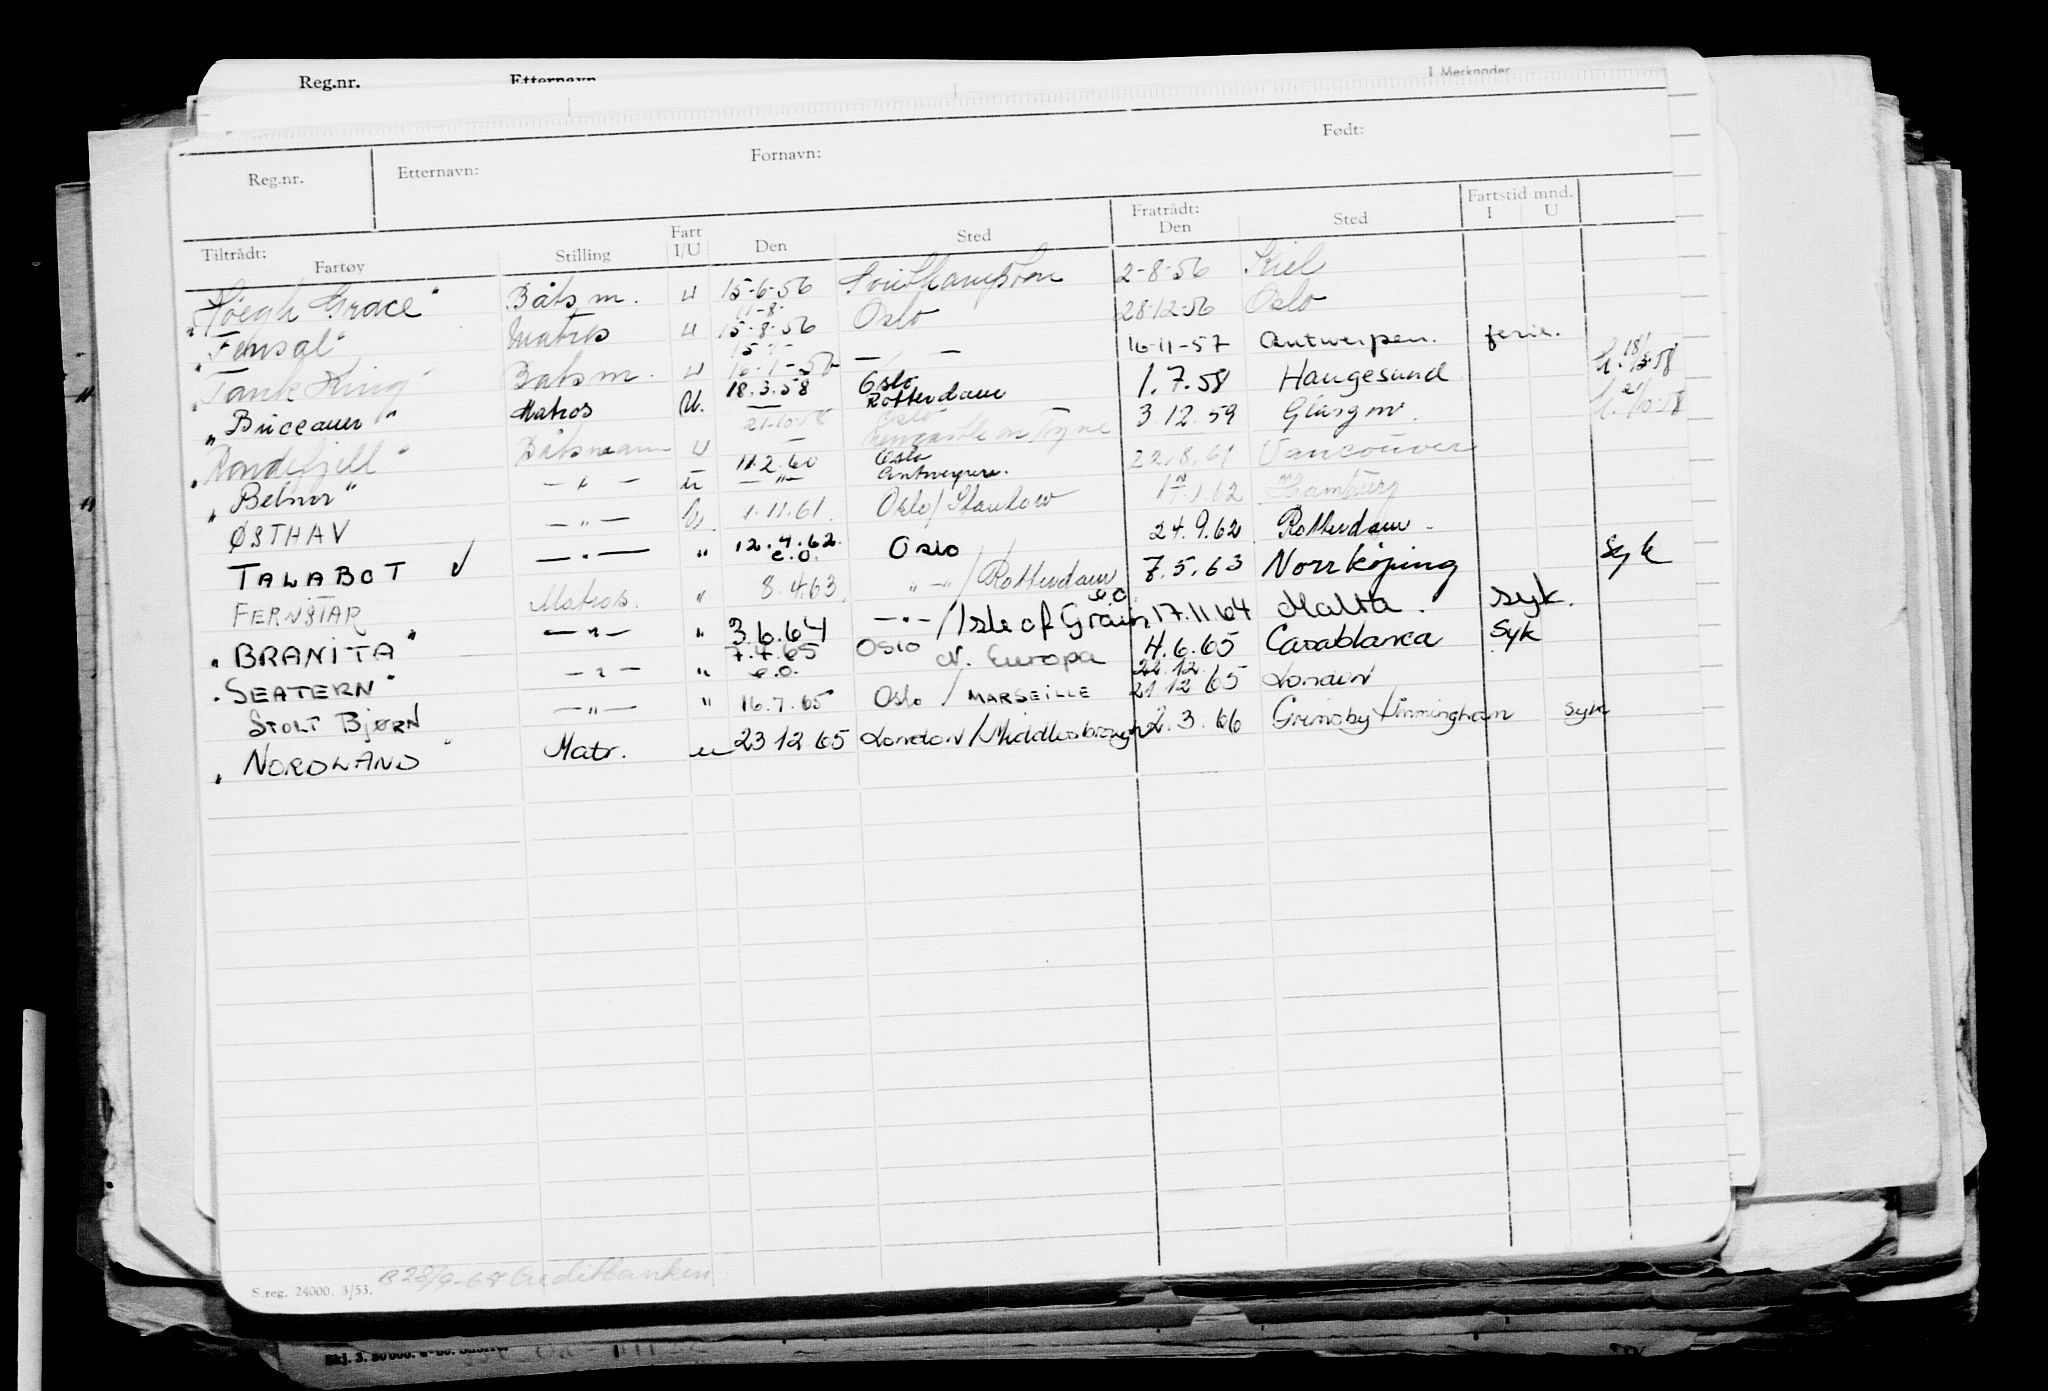 Reg.nr. Etternavn I Merknader
Reg.nr. Etternavn: Fornavn: Født:
Tiltrådt: Fratrådt: Fartstid mnd.
Fartøy Stilling Fart I/U Den Sted Den Sted I U
"Høegh Grace" Båtsm. u 15-6-56 Southampton 2-8-56 Kiel
"Fensal" Matros u 11-8- 15-8-56 Oslo 28-12-56 Oslo
"Tank King" Båtsm. u 16-1-57 — " — 16-11-57 Antwerpen. ferie.
"Buccaneer" Matros U. 18.3.58 Oslo Rotterdam 1.7.58 Haugesund h. 18/3-58
"Rondefjell" Båtsmann u 21-10-58 Oslo Newcastle on Tyne 3.12.59 Glasgow. h. 21/10-58
"Belnor" — " — u 11.2.60 — " — Oslo Antwerpen. 22.8.61 Vancouver
ØSTHAV — " — U. 1.11.61. Oslo/Stanlow 17.1.62 Hamburg
TALABOT √ — " — " 12.4.62. e.o. Oslo 24.9.62 Rotterdam
FERNSTAR Matros. " 8.4.63. " — " / Rotterdam e.o. 7.5.63 Norrköping syk
"BRANITA" — " — " 3.6.64 — " — / Isle of Grain 17.11.64 Malta. syk.
"SEATERN" — " — " 7.4.65 e.o. OSLO N. Europa 4.6.65 Casablanca syk
STOLT BJØRN — " — " 16.7.65 Oslo / MARSEILLE 22.12. 21 12 65 London
"NORDLAND" Matr. u 23 12 65 London/Middlesbrough 2.3.66 Grimsby/Immingham syk
S.reg. 24000. 3/53. B 28/9-67 Creditbanken